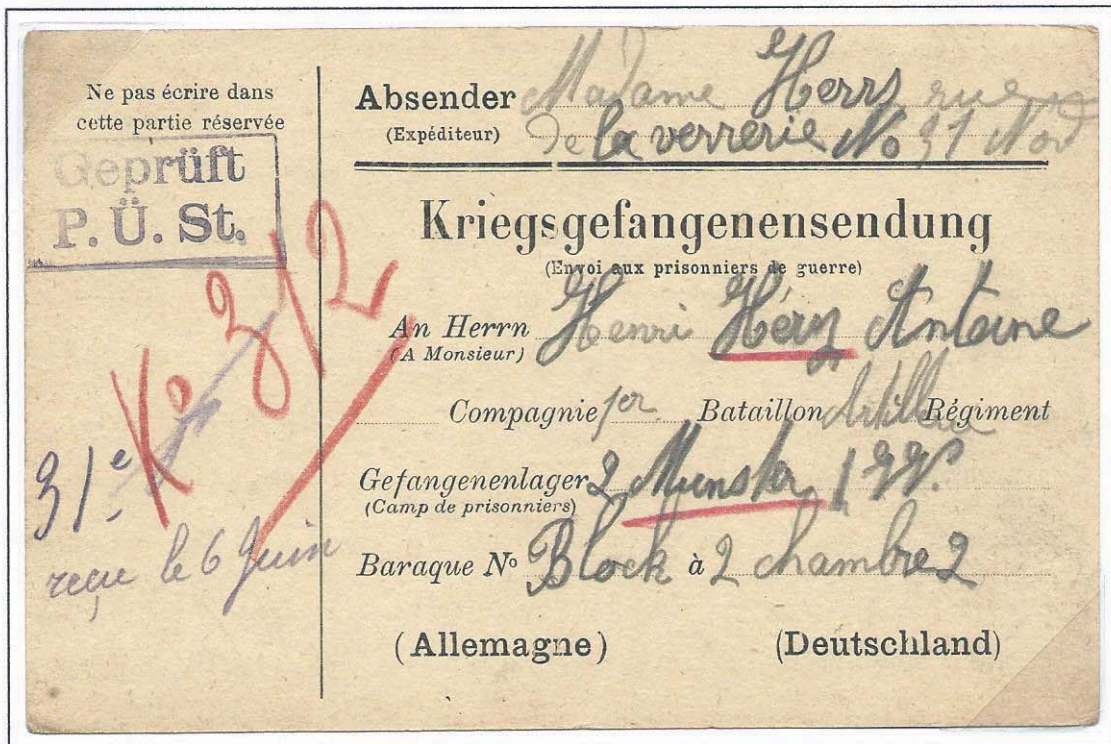 Ne pas écrire dans
cette partie réservée
Geprüft
P. Ü. St.
Ko 3/2
31e
reçue le 6 Juin
Absender Madame Herrz rue
(Expéditeur) De la verrerie No 31 Nord
Kriegsgefangenensendung
(Envoi aux prisonniers de guerre)
An Herrn Henri Herz Antoine
(A Monsieur)
Compagnie 1er Bataillon Artillerie Régiment
Gefangenenlager 2 Munster
(Camp de prisonniers)
Baraque No Block à 2 chambre 2
(Allemagne) (Deutschland)